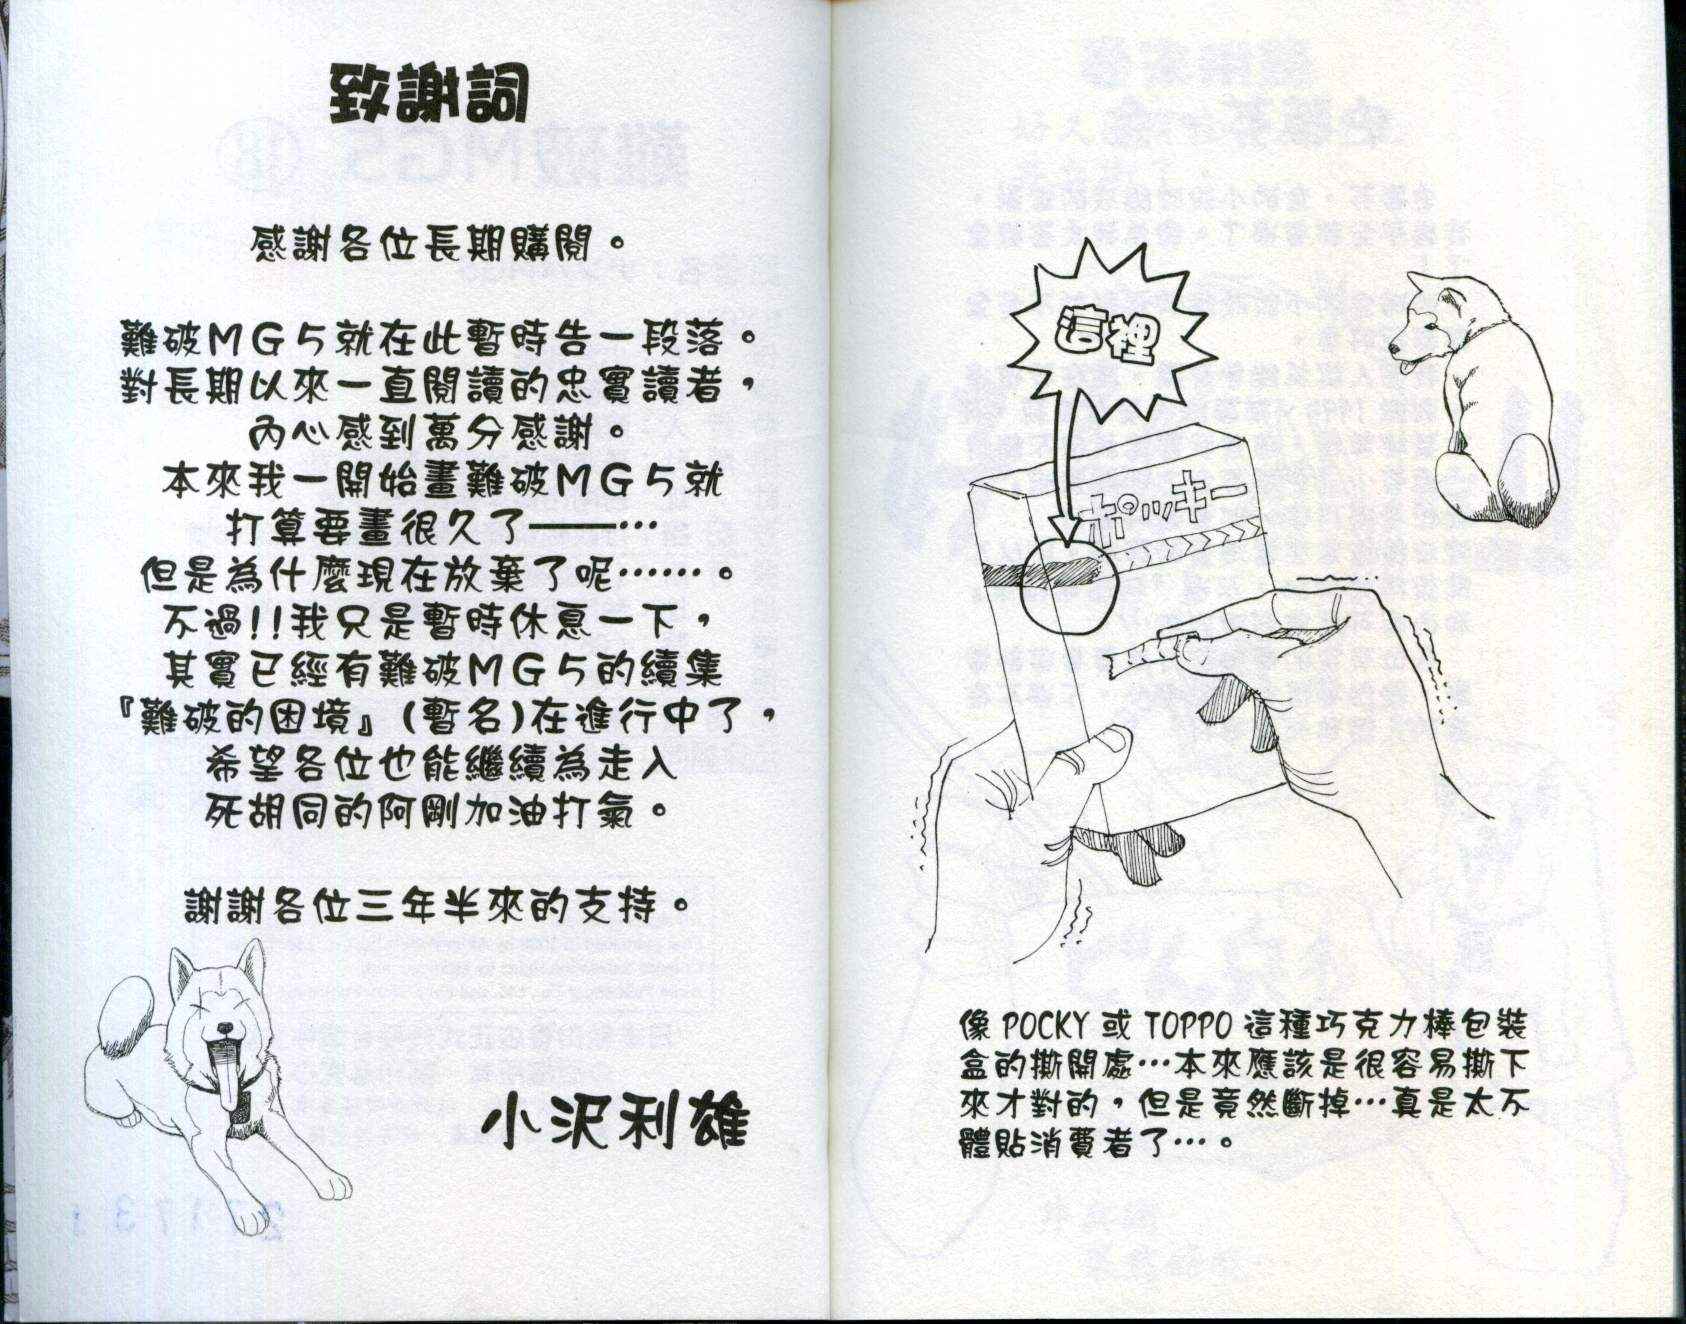 致謝詞
感謝各位長期購閱。
難破MG5就在此暫時告一段落。
對長期以來一直閱讀的忠實讀者，
內心感到萬分感謝。
本來我一開始畫難破MG5就
打算要畫很久了——…
但是為什麼現在放棄了呢……。
不過!!我只是暫時休息一下，
其實已經有難破MG5的續集
『難破的困境』(暫名)在進行中了，
希望各位也能繼續為走入
死胡同的阿剛加油打氣。
謝謝各位三年半來的支持。
小沢利雄
這裡
ポッキー
像POCKY或TOPPO這種巧克力棒包裝
盒的撕開處…本來應該是很容易撕下
來才對的，但是竟然斷掉…真是太不
體貼消費者了…。